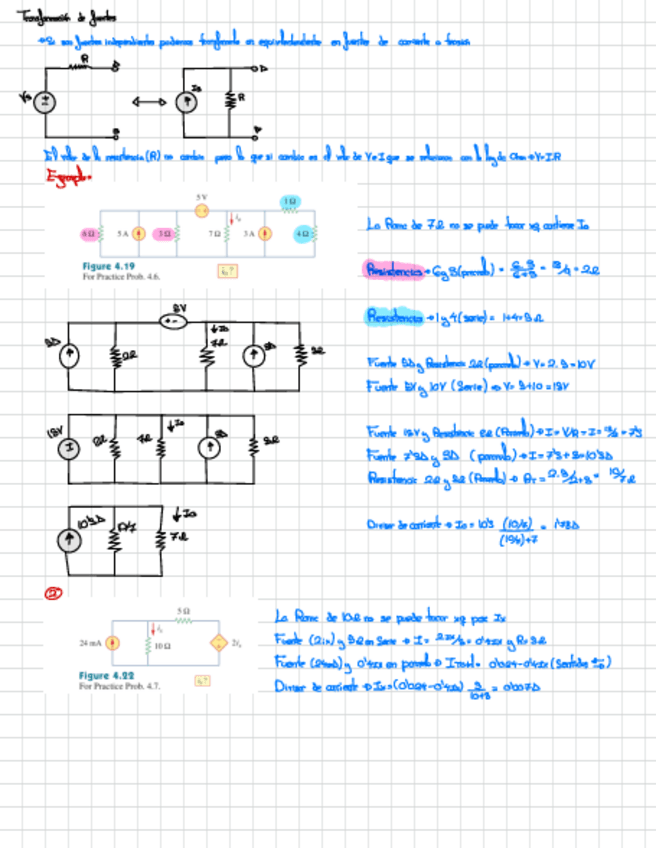 Transformación de fuentes
→Si son fuentes independientes podemos transformarla en equivalentemente en fuentes de corriente o tensión
R
Vs
Is
R
El valor de la resistencia (R) no cambia pero lo que si cambia es el valor de V e I que se relacionan con la ley de Ohm → V=I.R
Ejemplo
5 V
1 Ω
6 Ω
5 A
3 Ω
7 Ω
3 A
4 Ω
Figure 4.19
For Practice Prob. 4.6.
La Rama de 7Ω no se puede tocar xq contiene Io
Resistencias → 6 y 3 (paralelo) =
Resistencias → 1 y 4 (serie) = 1+4=5Ω
5V
2Ω
7Ω
Io
Fuente 5A y Resistencia 2Ω (paralelo) → V= 2.5=10V
Fuente 5V y 10V (Serie) → V= 5+10=15V
15V
2Ω
7Ω
Io
Fuente 15V y Resistencia 2Ω (Paralelo) → I=V/R → I= 15/2 = 7'5
Fuente 7'5A y 3A (paralelo) → I=7'5+3=10'5A
Resistencia 2Ω y 5Ω (Paralelo) → RT= 2.5/2+5 = 10/7 Ω
10'5A
10/7
7Ω
Io
Divisor de corriente → Io = 10'5 (10/7)/(10/7)+7 = 1'78A
②
5 Ω
24 mA
10 Ω
Figure 4.22
For Practice Prob. 4.7.
La Rama de 10Ω no se puede tocar xq pasa Ix
Fuente (2ix) y 5Ω en Serie → I= 2ix/5 = 0'4ix y R=5Ω
Fuente (24mA) y 0'4ix en paralelo → Itotal= 0'024-0'4ix (Sentidos
Divisor de corriente → Ix=(0'024-0'4ix) 5/10+5 = 0'007A